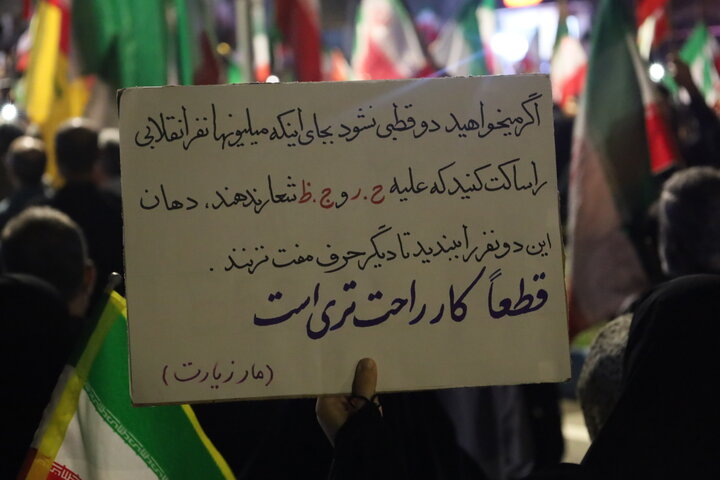 اگر میخواهید دو قطبی نشود بجای اینکه میلیونها نفر انقلابی
را ساکت کنید که علیه ح.ر و ج.ظ شعار ندهند، دهان
این دو نفر را ببندید تا دیگر حرف مفت نزنند.
قطعاً کار راحت تری است
(مار زیارت)